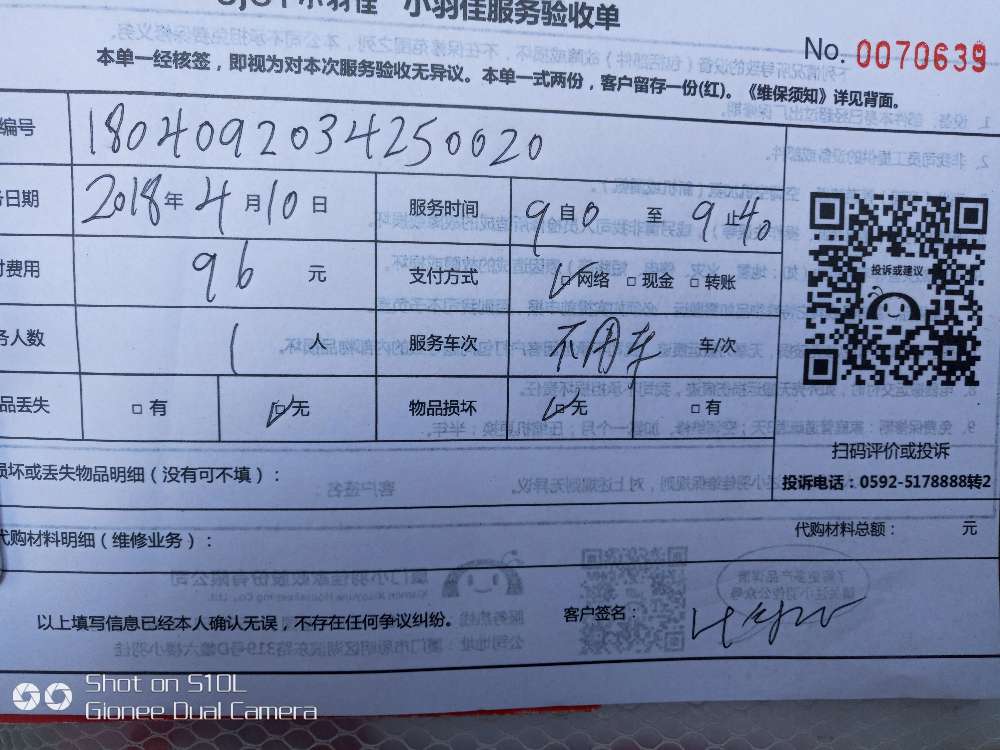 小羽佳 小羽佳服务验收单
No. 0070639
本单一经核签，即视为对本次服务验收无异议。本单一式两份，客户留存一份(红)。《维保须知》详见背面。
编号 1804092034250020
日期 2018年4月10日 服务时间 9自0 至 9止40
付费用 96 元 支付方式 ☑网络 □现金 □转账
务人数 1 人 服务车次 不用车 车/次
品丢失 □有 ☑无 物品损坏 ☑无 □有
投诉或建议
扫码评价或投诉
投诉电话：0592-5178888转2
损坏或丢失物品明细（没有可不填）：
代购材料明细（维修业务）： 代购材料总额： 元
以上填写信息已经本人确认无误，不存在任何争议纠纷。 客户签名：
Shot on S10L
Gionee Dual Camera